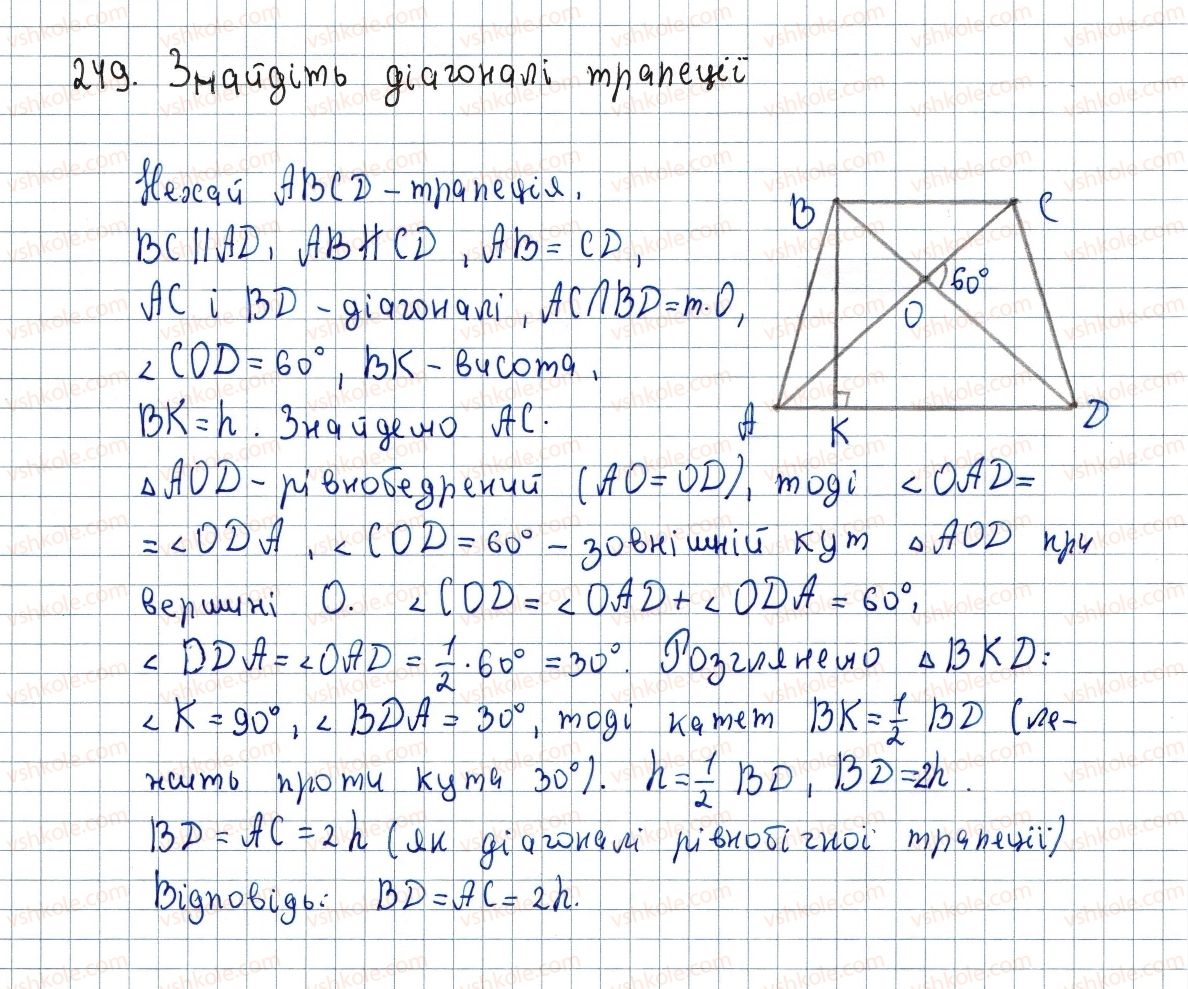 249. Знайдіть діагоналі трапеції
Нехай ABCD – трапеція.
BC || AD, AB ∦ CD, AB = CD,
AC і BD – діагоналі, AC ∩ BD = т. O,
∠ COD = 60°, BK – висота,
BK = h. Знайдемо AC.
△ AOD – рівнобедрений (AO = OD), тоді ∠ OAD =
= ∠ ODA, ∠ COD = 60° – зовнішній кут △ AOD при
вершині O. ∠ COD = ∠ OAD + ∠ ODA = 60°,
∠ DDA = ∠ OAD = 1/2 · 60° = 30°. Розглянемо △ BKD:
∠ K = 90°, ∠ BDA = 30°, тоді катет BK = 1/2 BD (ле-
жить проти кута 30°). h = 1/2 BD, BD = 2h.
BD = AC = 2h (як діагоналі рівнобічної трапеції)
Відповідь: BD = AC = 2h.
B C
60°
O
A K D
vshkole.com